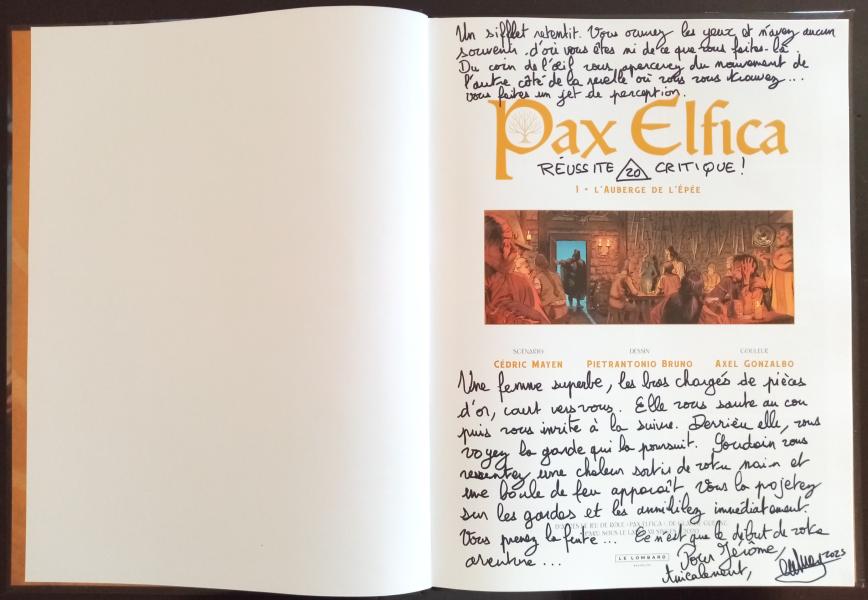 Un sifflet retentit. Vous ouvrez les yeux et n'avez aucun
souvenir d'où vous êtes ni de ce que vous faites là.
Du coin de l'œil vous apercevez du mouvement de
l'autre côté de la ruelle où vous vous trouvez...
vous faites un jet de perception.
Pax Elfica
RÉUSSITE 20 CRITIQUE !
1 • L'AUBERGE DE L'ÉPÉE
SCÉNARIO DESSIN COULEUR
CÉDRIC MAYEN PIETRANTONIO BRUNO AXEL GONZALBO
Une femme superbe, les bras chargés de pièces
d'or, court vers vous. Elle vous saute au cou
puis vous invite à la suivre. Derrière elle, vous
voyez la garde qui la poursuit. Soudain vous
ressentez une chaleur sortir de votre main et
une boule de feu apparaît. Vous la projetez
sur les gardes et les annihilez immédiatement.
D'APRÈS LE JEU DE RÔLE « PAX ELFICA » DE
Vous prenez la fuite... Ce n'est que le début de votre
aventure...
LE LOMBARD
Pour Jérôme,
Amicalement,
2023